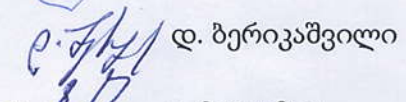 დ. ბერიკაშვილი